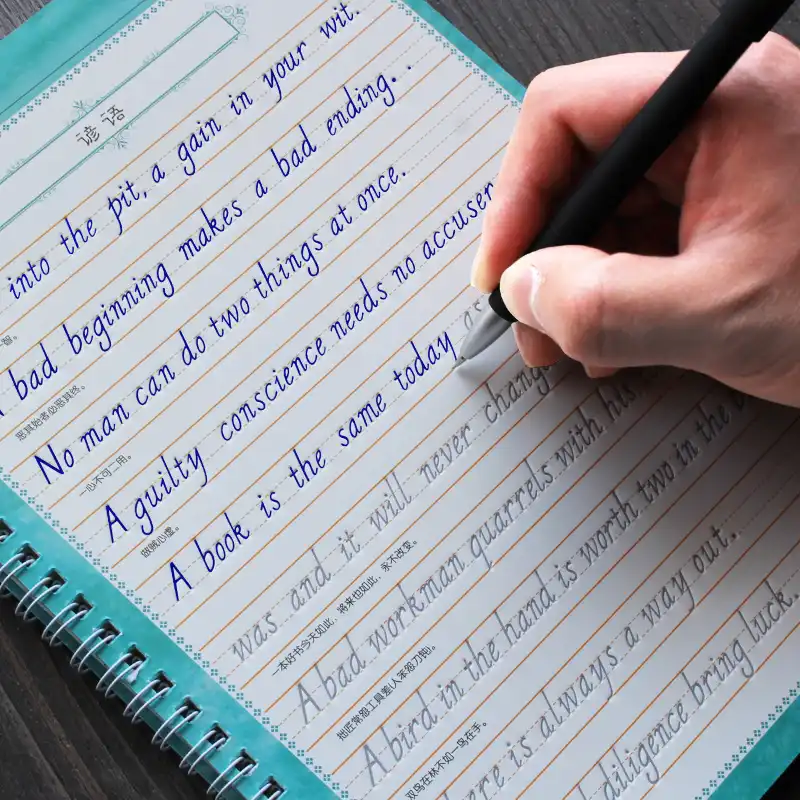 谚语
into the pit, a gain in your wit.
bad beginning makes a bad ending. .
恶其始者必恶其终。
No man can do two things at once.
一心不可二用。
A guilty conscience needs no accuser
做贼心虚。
A book is the same today as
was and it will never change
一本好书今天如此，将来也如此，永不改变。
A bad workman quarrels with his
拙匠常怨工具差(人笨怨刀钝)。
A bird in the hand is worth two in the
双鸟在林不如一鸟在手。
is always a way out.
diligence bring luck.